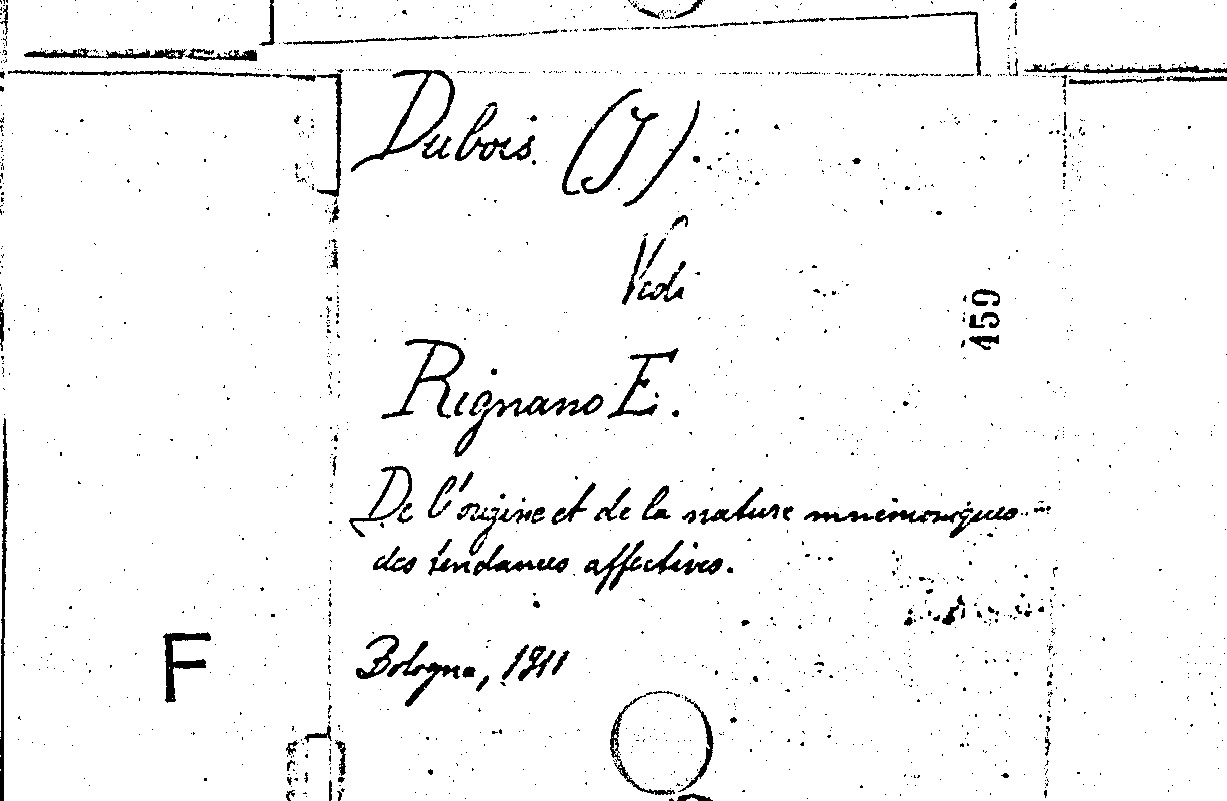 Dubois (J).
Vedi
459
Rignano E.
De l'origine et de la nature mnémoniques
des tendances affectives.
F
Bologna, 1911